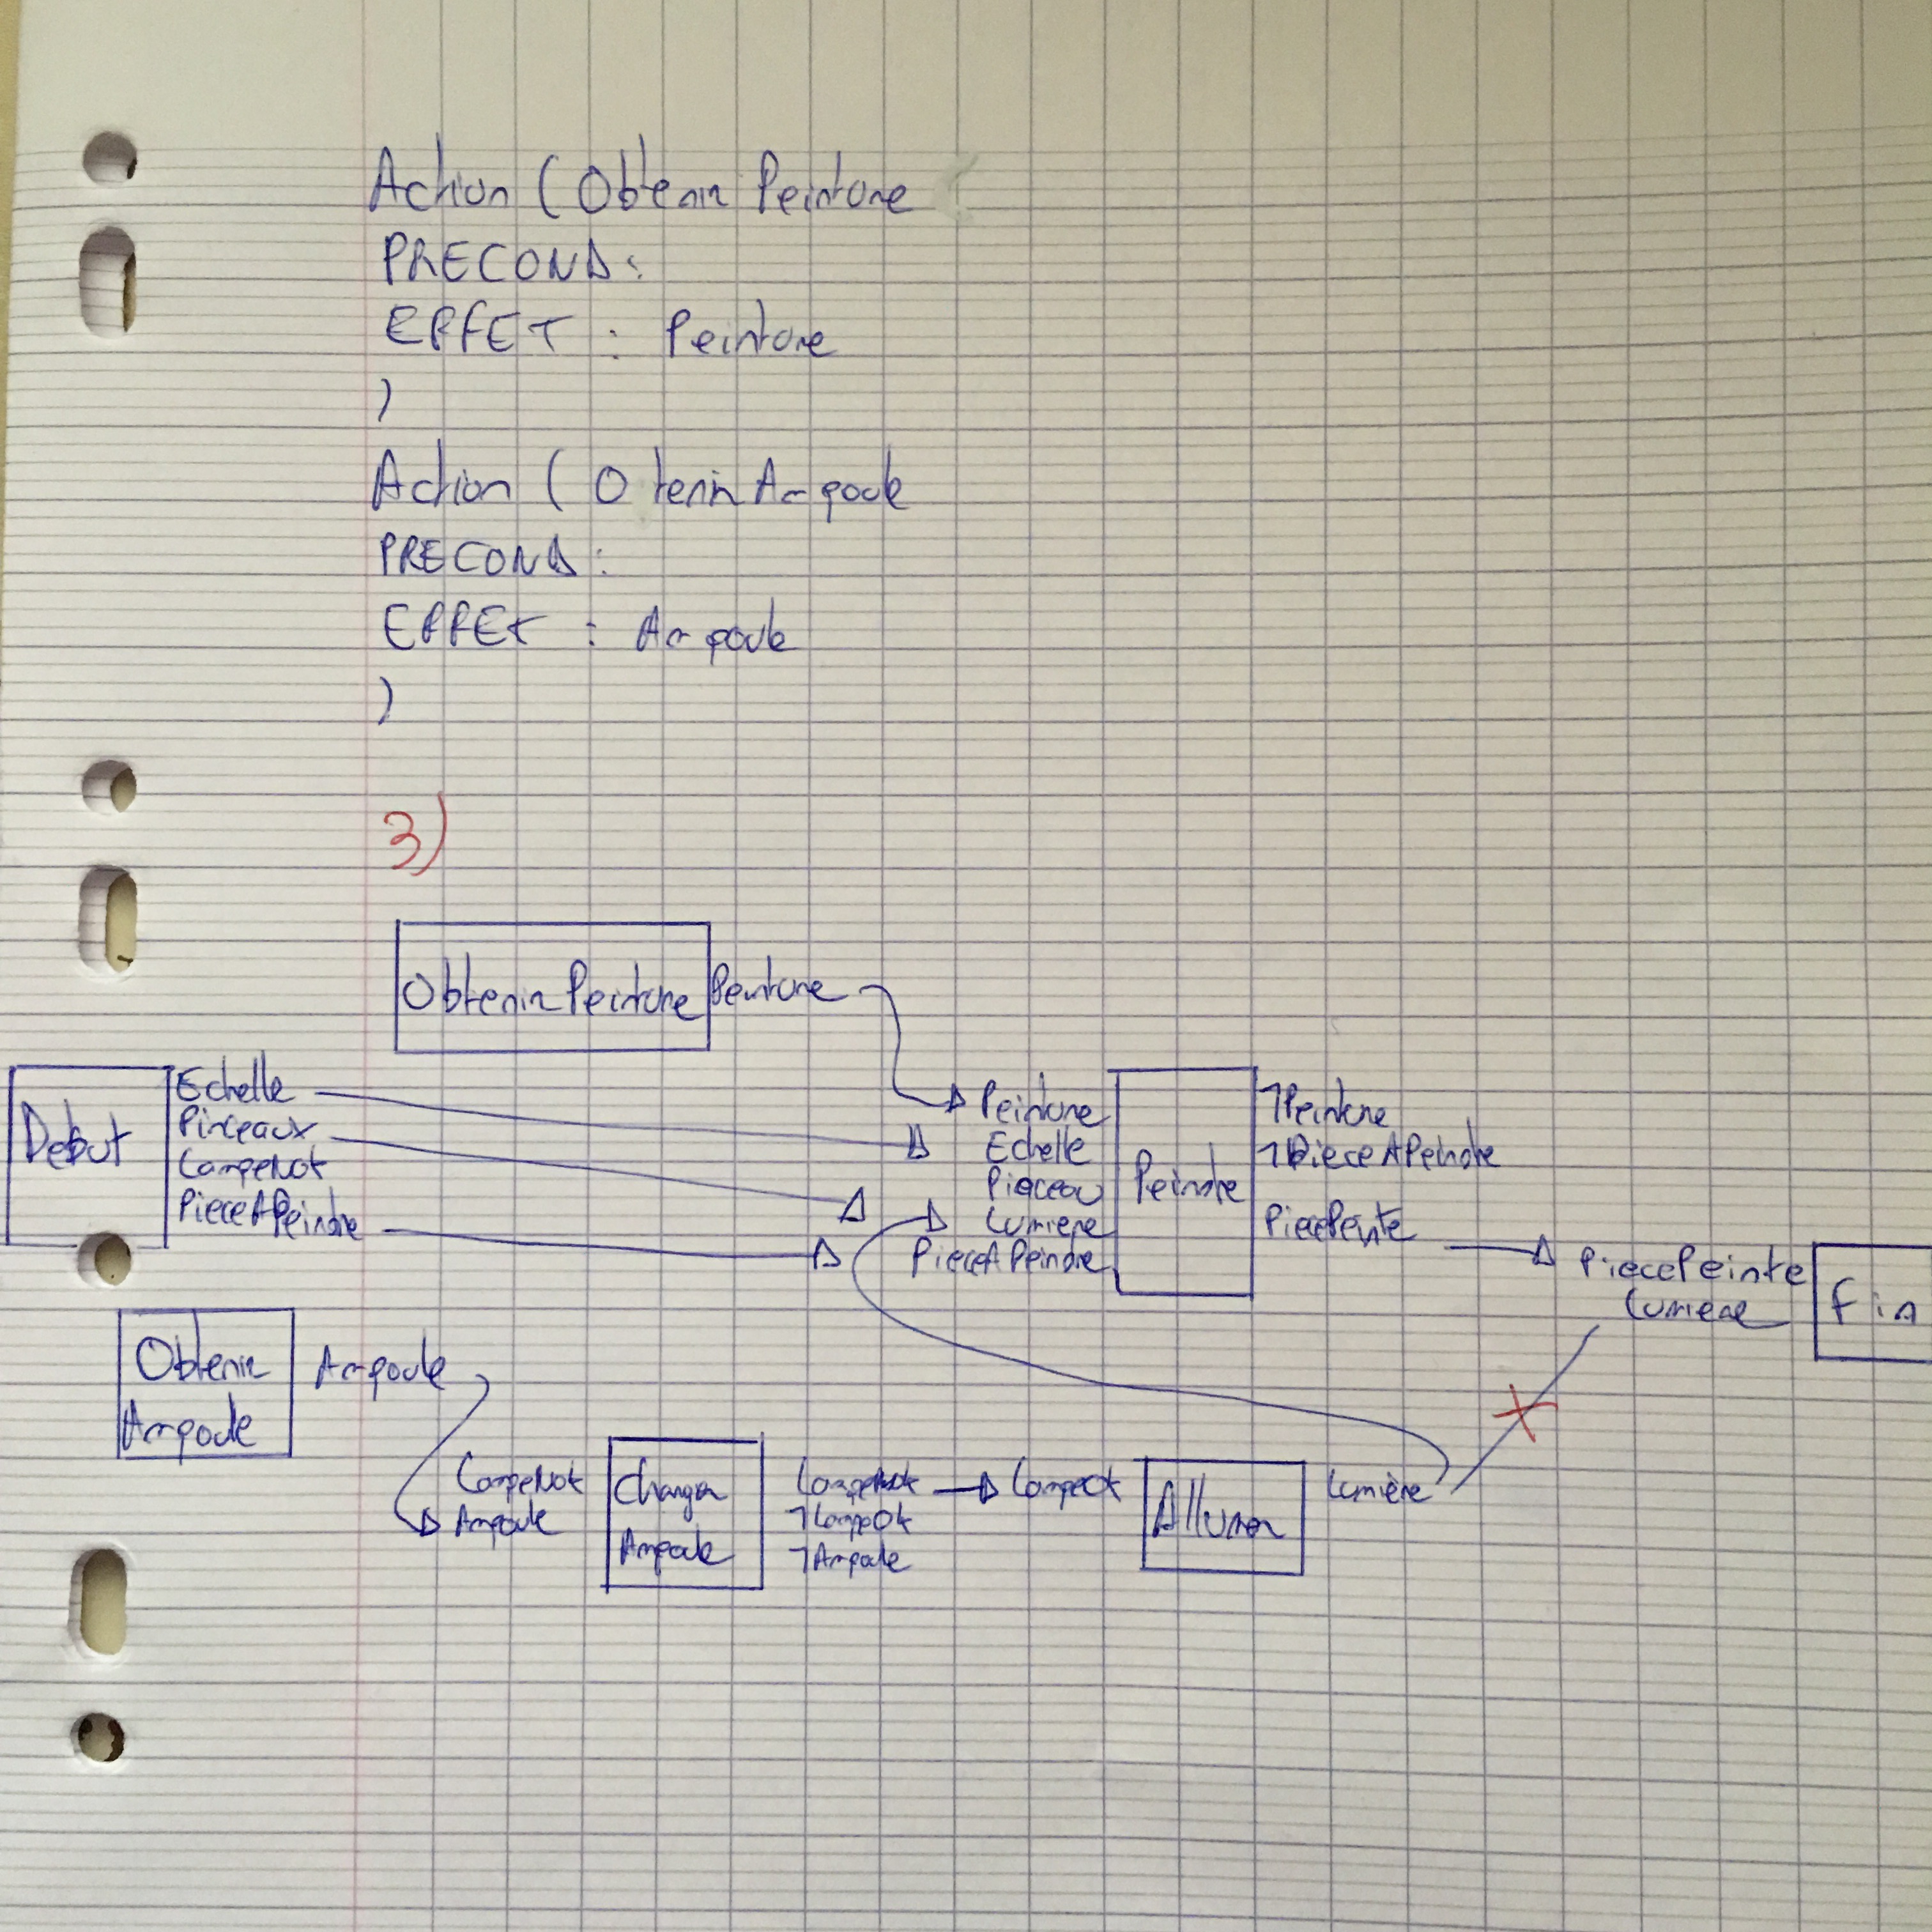 Action ( Obtenir Peinture
PRECOND:
EFFET : Peinture
)
Action ( O tenir Ampoule
PRECOND:
EFFET : Ampoule
)
3)
Obtenir Peinture Peinture
Debut
Echelle
Pinceaux
LampeNok
PieceAPeindre
Peinture
Echelle
Pinceau
Lumiere
PieceAPeindre
Peindre
¬Peinture
¬PieceAPeindre
PiecePeinte
PiecePeinte
Lumiere
Fin
Obtenir
Ampoule
Ampoule
LampeNok
Ampoule
Changer
Ampoule
LampeNok
¬LampOk
¬Ampoule
LampeOk
Allumer
Lumière